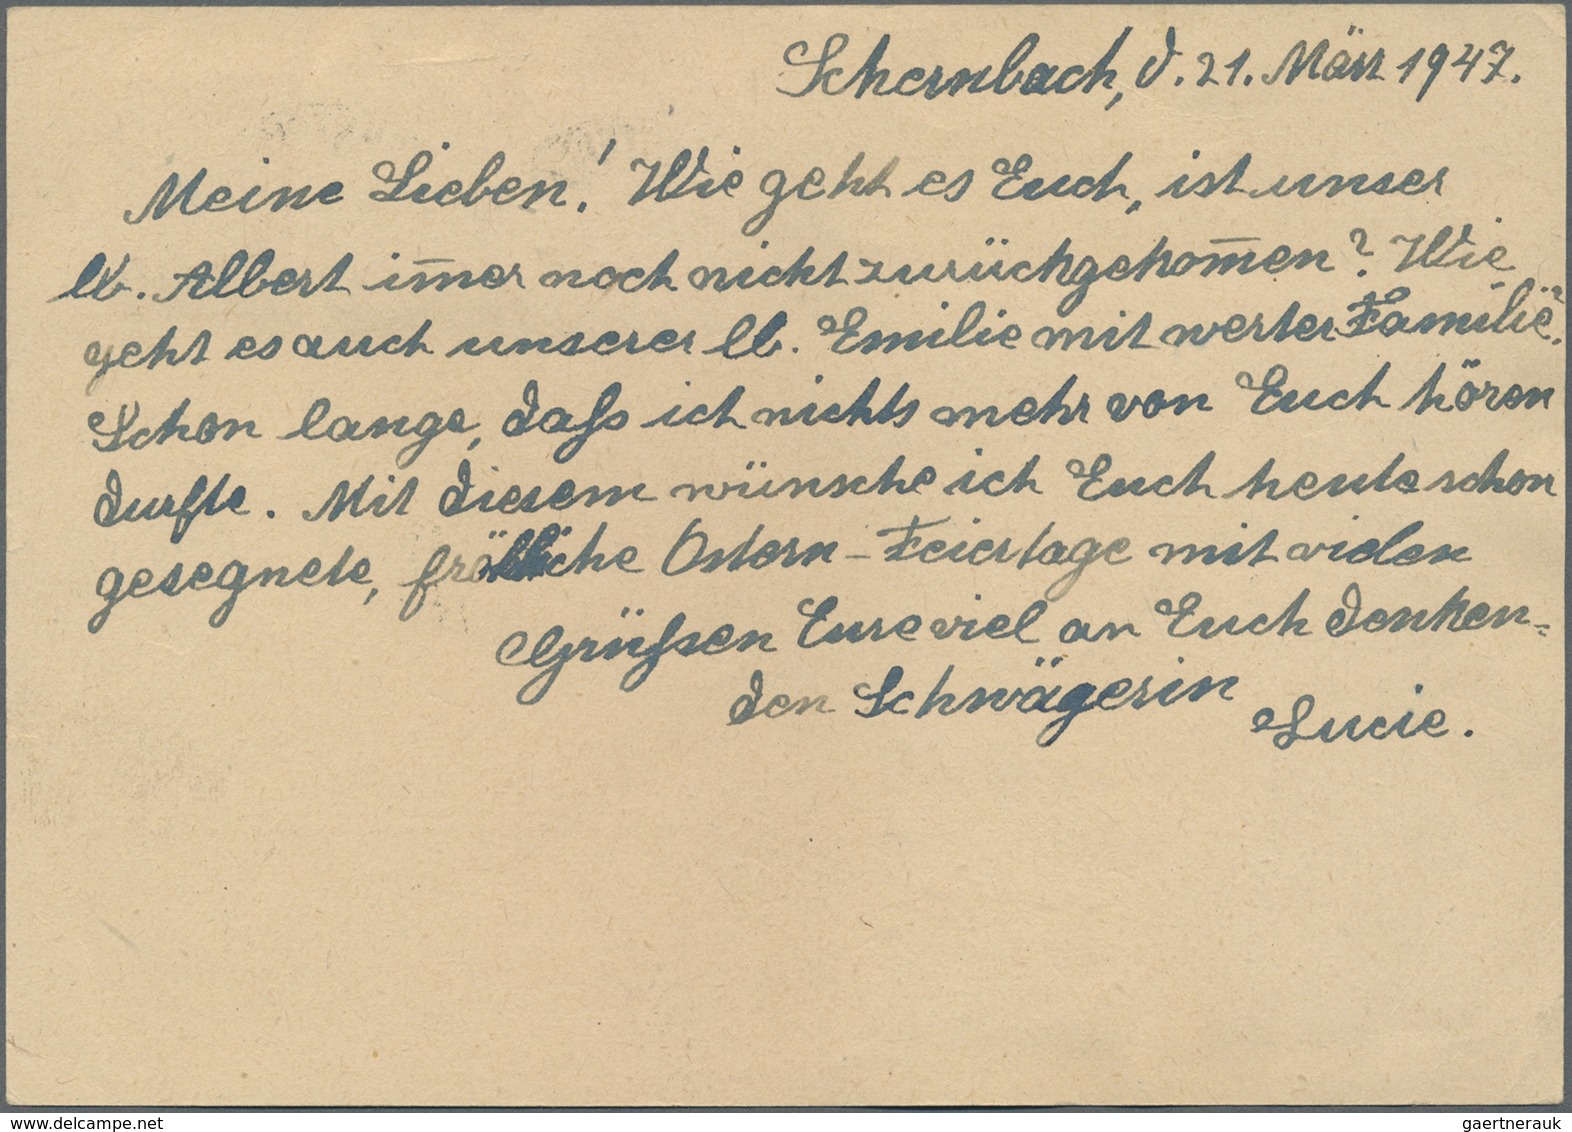 Schernbach, d. 21. März 1947.
Meine Lieben! Wie geht es Euch, ist unser
lb. Albert im̅er noch nicht zurückgekom̅en? Wie
geht es auch unserer lb. Emilie mit werter Familie?
Schon lange, daß ich nichts mehr von Euch hören
durfte. Mit diesem wünsche ich Euch heute schon
gesegnete, fröhliche Ostern-Feiertage mit vielen
Grüßen Eure viel an Euch denken-
den Schwägerin
Lucie.
www.delcampe.net
gaertnerauk